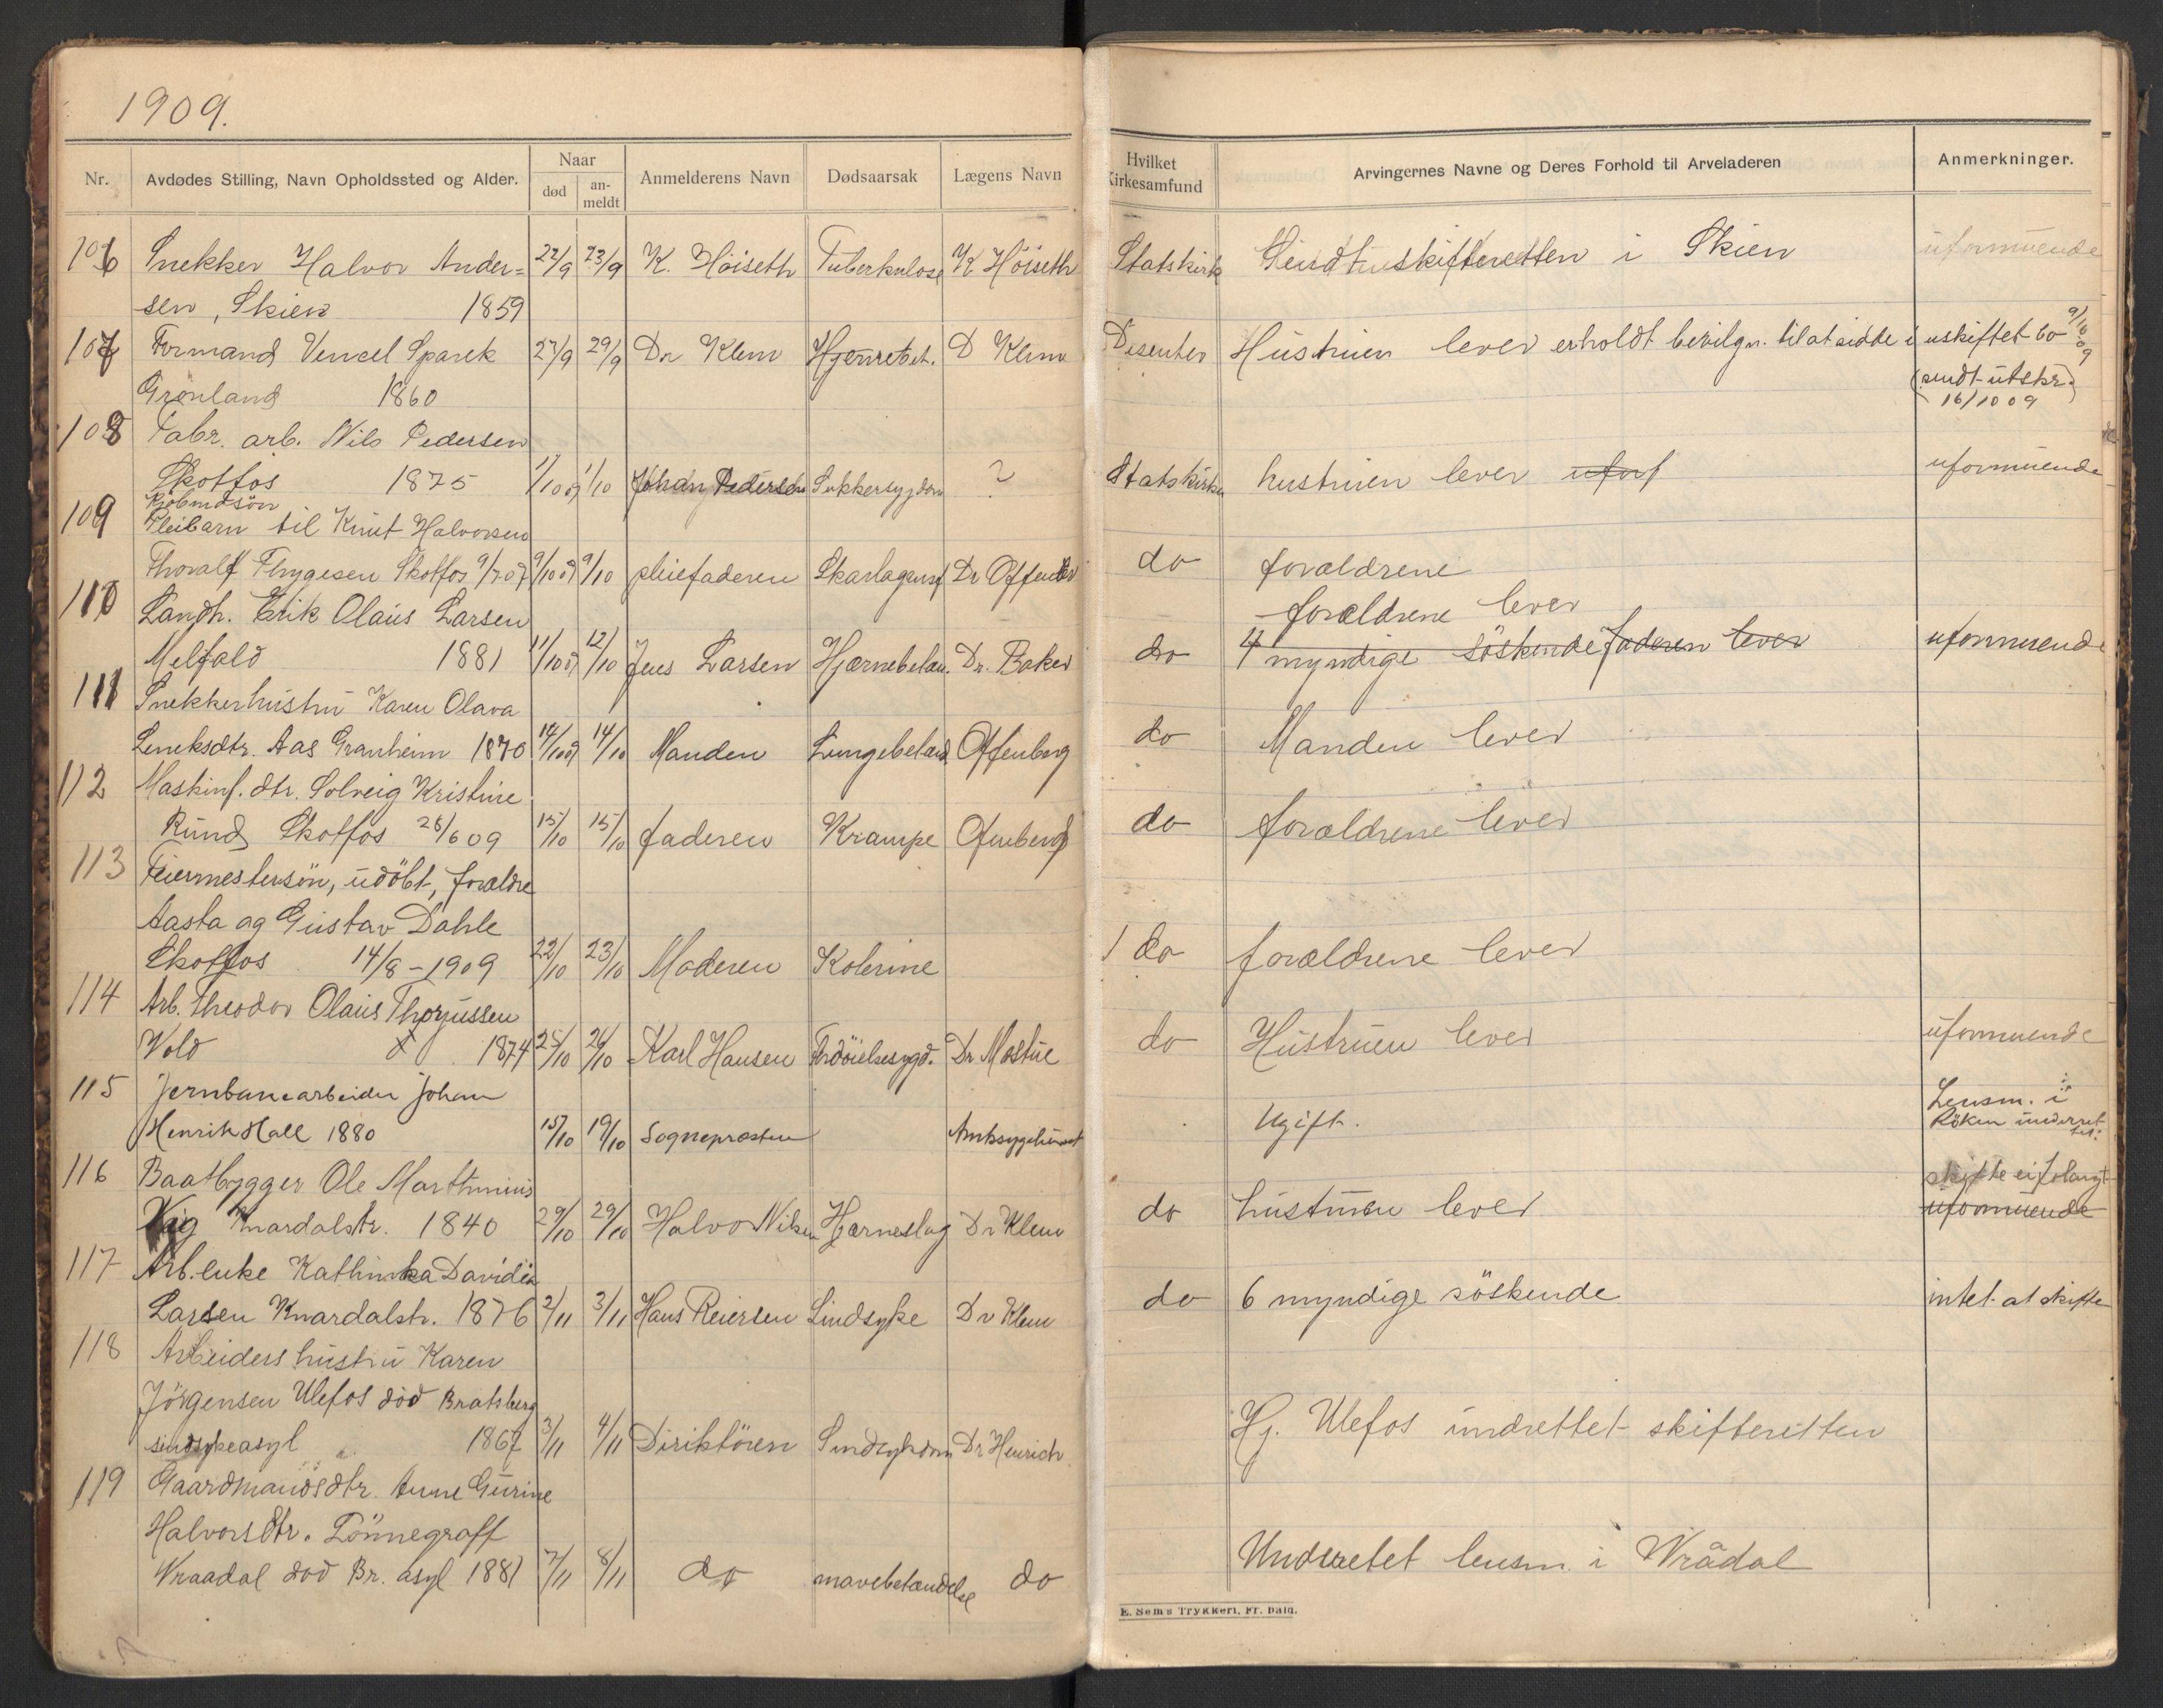 1909.
Nr. Avdødes Stilling, Navn Opholdssted og Alder. Naar død an-meldt Anmelderens Navn Dødsaarsak Lægens Navn Hvilket Kirkesamfund Arvingernes Navne og Deres Forhold til Arveladeren Anmerkninger.
106 Snekker Halvor Ander= 22/9 23/9 K. Höiseth Tuberkulose K Höiseth Statskirk skifteretten i Skien uformuende
sen, Skien 1859
107 Formand Vencel Sparek 27/9 29/9 Dr Klem D Klem Disenter Hustruen lever erholdt bevilgn. til at sidde i uskiftet bo 9/10 09
Grönland 1860 (sendt utskr. 16/10 09)
108 Fabr. arb. Nils Pedersen
Skotfos 1875 1/10 09 1/10 Johan Pedersen Sukkersygdom ? Statskirken hustruen lever uform uformuende
109 Kjöbmdsön
Pleibarn til Knut Halvorsen
Thoralf Thygesen Skotfos 9/7 07 9/10 09 9/10 pleiefaderen Skarlagensf Dr Offenber do forældrene
110 Landh. Erik Olaus Larsen forældrene lever
Melfald 1881 11/10 09 12/10 Jens Larsen Hjærnebetæn. Dr. Baker do 4 myndige söskende faderen lever uformuende
111 Snekkerhustru Karen Olava
Aas Granheim 1870 14/10 09 14/10 Manden Lungebetænd Offenberg do Manden lever
112 Maskinf. dtr. Solveig Kristine
Rund Skotfos 26/6 09 15/10 15/10 faderen Krampe Ofenberg do forældrene lever
113 Feiermestersön, udöbt, forældre
Aasta og Gustav Dahle
Skotfos 14/8-1909 22/10 23/10 Moderen Kolerine do forældrene lever
114 Arb. Theodor Olaus Thorjussen
Vold 1874 25/10 26/10 Karl Hansen Fordöielsesygd. Dr Mostue do Hustruen lever uformuende
115 Jernbanearbeider Johan
Henrik Hall 1880 15/10 19/10 Sogneprosten Amtsygehuset Ugift. Lensm. i Röken underret
116 Baatbygger Ole Marthinius
Vig Knardalstr. 1840 29/10 29/10 Halvor Nilsen Hjærneslag Dr Klem do hustruen lever skifte ei forlangt uformuende
117 Arb. enke Kathinka Davidia
Larsen Knardalstr. 1876 2/11 3/11 Hans Reiersen Sindsyke Dr Klem do 6 myndige söskende intet at skifte
118 Arbeiders hustru Karen
Jörgensen Ulefos död Bratsberg
sindsykeasyl 1867 3/11 4/11 Diriktören Sindsykdom Dr Henrich Hj. Ulefos undrettet skifteretten
119 Gaardmandsdtr. Anne Gurine
Halvorsdtr. Tönnegraff
Vraadal död Br. asyl 1881 7/11 8/11 do mavebetændelse do Underretet lensm. i Vrådal
E. Sem's Trykkeri, Fr. hald.